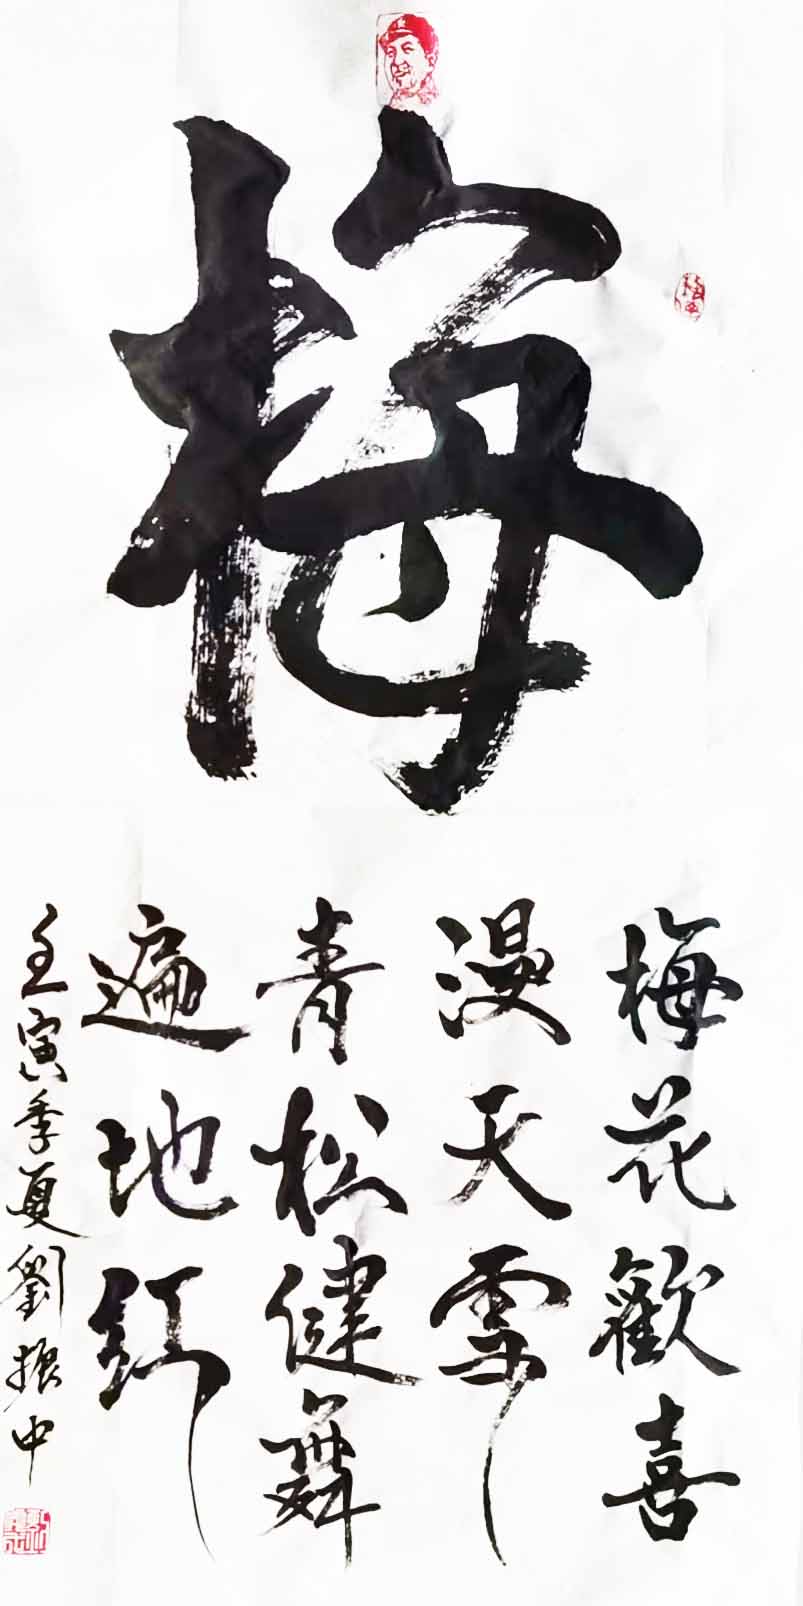 梅
梅花歡喜
漫天雪
青松健舞
遍地紅
壬寅季夏劉振中